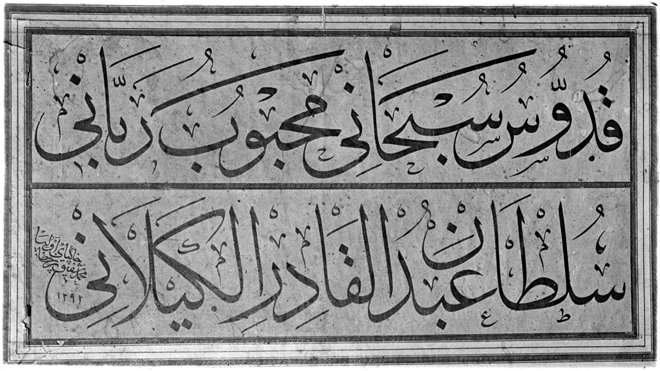 قُدُّوسُ سُبْحَانِي مَحْبُوبُ رَبَّانِي
سُلْطَان عَبْدُ الْقَادِرِ الْكَيْلَانِي
١٢٩٢